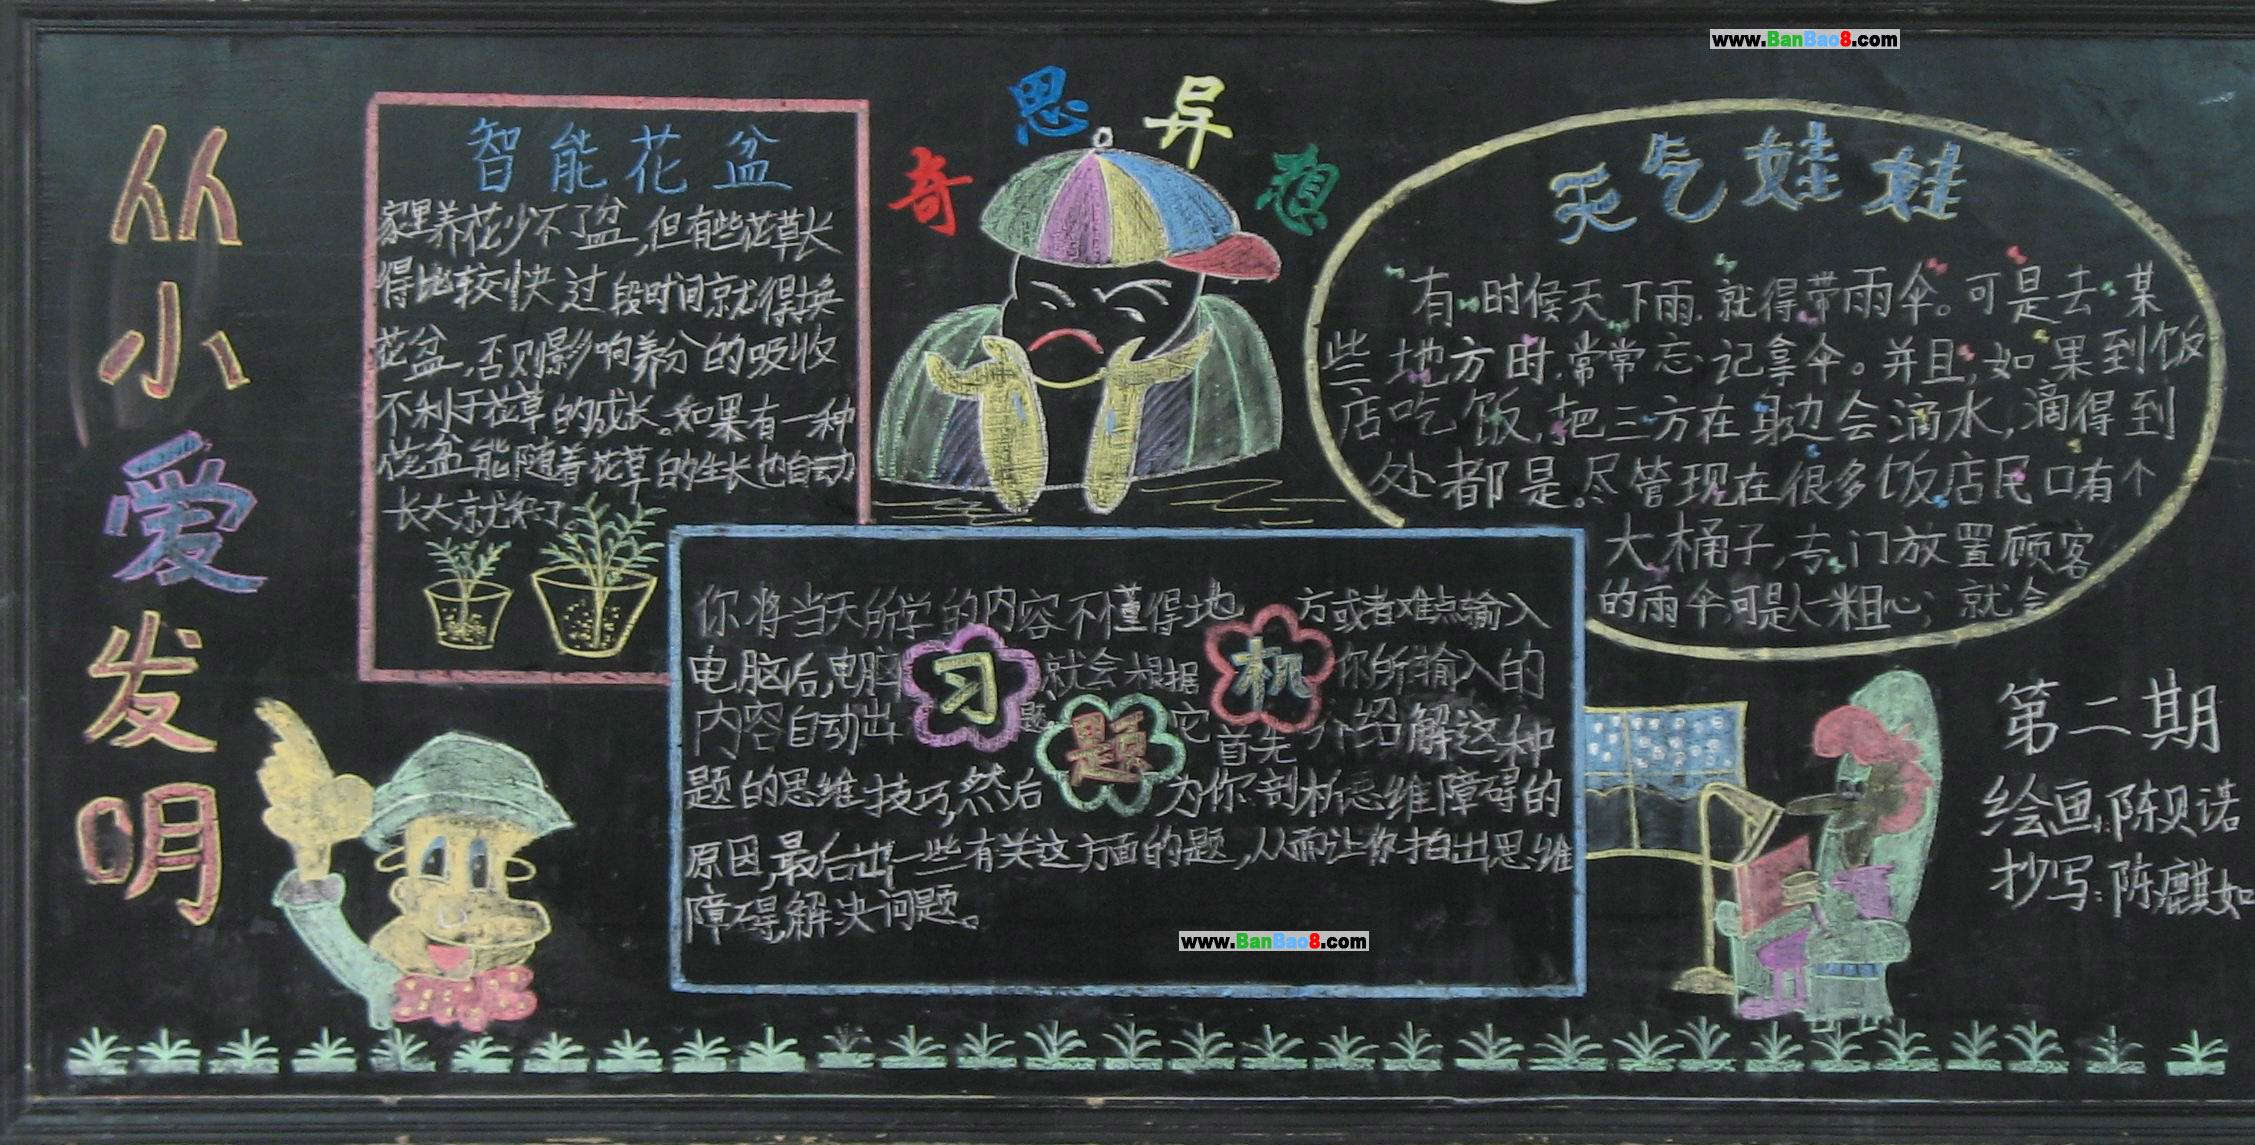 www.BanBao8.com
从小爱发明
智能花盆
家里养花少不了盆,但有些花草长
得比较快过段时间就得换
花盆,否则影响养分的吸收
不利于花草的成长。如果有一种
花盆能随着花草的生长也自动
长大,就好了。
奇思异想
天气娃娃
有时候天下雨,就得带雨伞。可是去某
些地方时,常常忘记拿伞。并且,如果到饭
店吃饭,把三方在身边会滴水,滴得到
处都是。尽管现在很多饭店民口有个
大桶子,专门放置顾客
的雨伞,可是人一粗心,就会
习题机
你将当天所学的内容不懂得地方或者难点输入
电脑后,电脑就会根据你所输入的
内容自动出题。它首先介绍解这种
题的思维技巧,然后为你剖析思维障碍的
原因,最后出一些有关这方面的题,从而让你拍出思维
障碍,解决问题。
www.BanBao8.com
第二期
绘画:陈贝诺
抄写:陈麒如